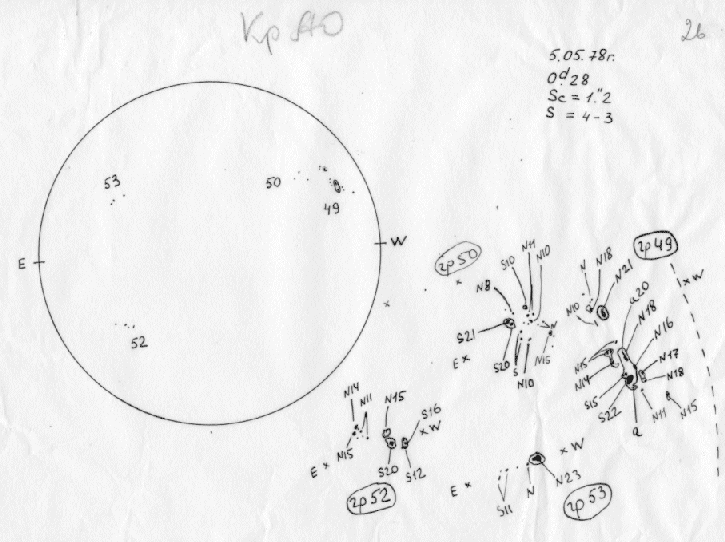 КрАО
26
5.05.78г.
0.ᵈ28
Sc = 1."2
S = 4-3
53
50
49
E
W
52
гр50
N11
S10
N10
N8
S21
S20
S
N10
N15
E
N
N18
N21
N10
гр49
W
а20
N18
N16
N15
N14
N17
N18
S15
S22
N11
N15
а
N14
N11
N15
S16
W
N15
E
S20
S12
гр52
W
E
S11
N
N23
гр53